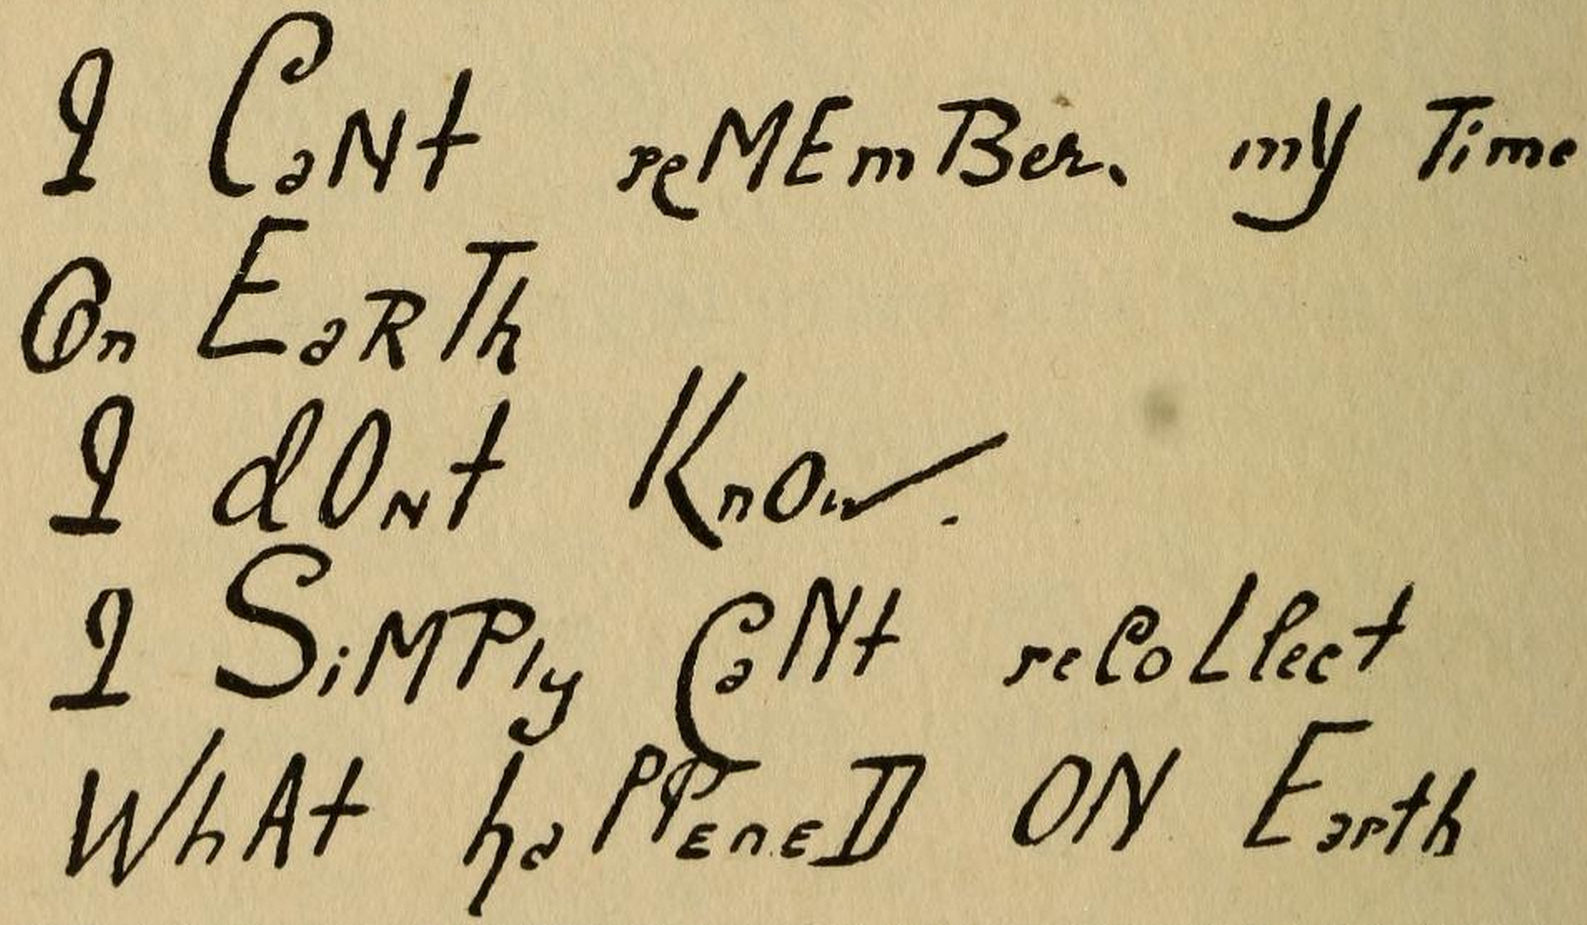 I CaNt reMEmBer. mY Time
On EaRTh
I dOnt KnOw.
I SiMPly CaNt recoLlect
WhAt haPPEnED ON Earth